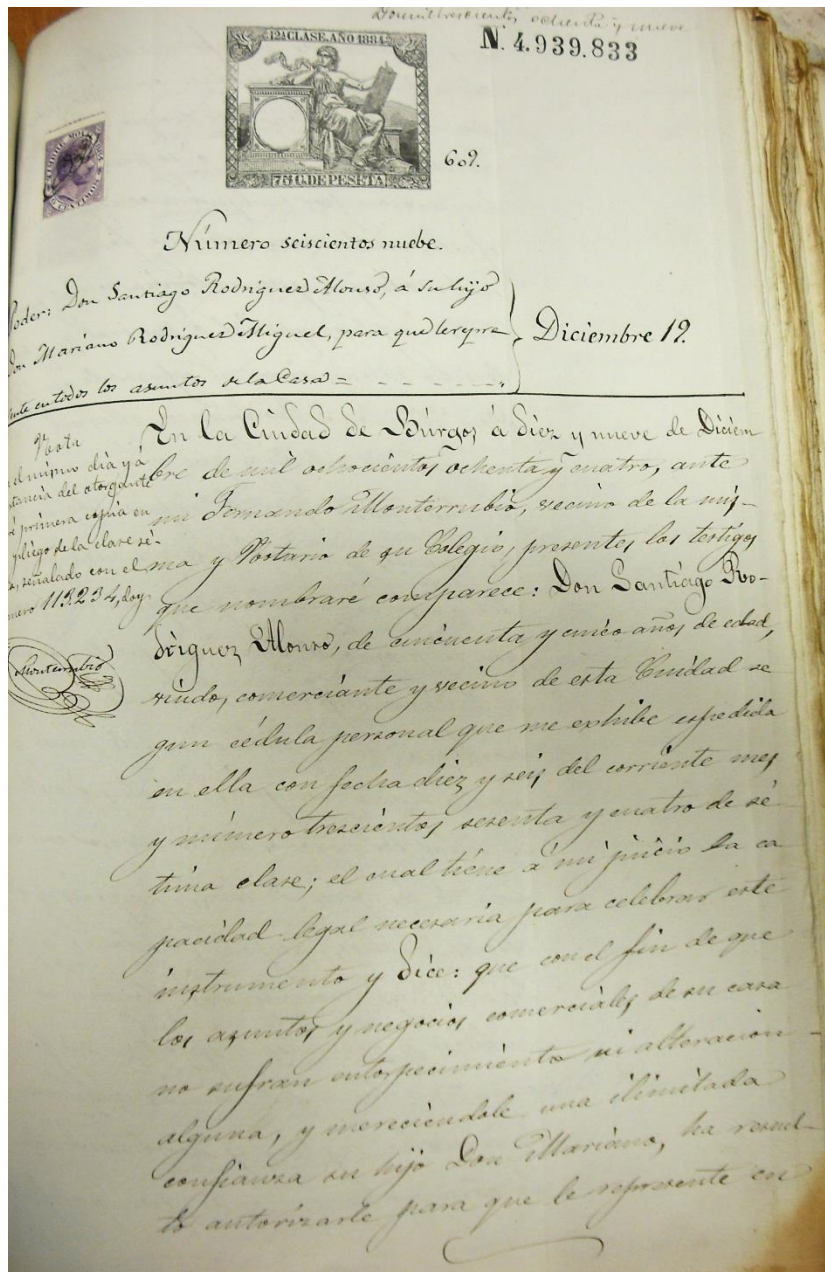 Dos mil trescientos ochenta y nueve
12ª CLASE. AÑO 1884
N. 4.939.833
75 C. DE PESETA
609.
Número seiscientos nuebe.
Poder: Don Santiago Rodriguez Alonso, á su hijo
Don Mariano Rodriguez Miguel, para que le repre
sente en todos los asuntos de la Casa =
Diciembre 19.
Nota
el mismo dia y á
instancia del otorgante
primera copia en
pliego de la clase sé-
señalado con el
número 113.234, doy
Monterrubio
En la Ciudad de Búrgos á diez y nueve de Diciem
bre de mil ochocientos ochenta y cuatro, ante
mi Fernando Monterrubio, vecino de la mis-
ma y Notario de su Colegio, presentes los testigos
que nombraré comparece: Don Santiago Ro-
driguez Alonso, de cincuenta y cinco años de edad,
viudo, comerciante y vecino de esta Ciudad se
gun cédula personal que me exhibe espedida
en ella con fecha diez y seis del corriente mes
y número trescientos sesenta y cuatro de sé
tima clase; el cual tiene á mi juicio la ca
pacidad legal necesaria para celebrar este
instrumento y dice: que con el fin de que
los asuntos y negocios comerciales de su casa
no sufran entorpecimiento ni alteracion
alguna, y mereciéndole una ilimitada
confianza su hijo Don Mariano, ha resuel-
to autorizarle para que le represente en